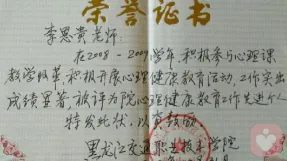 荣誉证书
李思贵老师:
在2008-2009学年,积极参与心理课
教学改革,积极开展心理健康教育活动,工作突出
成绩显著,被评为院心理健康教育工作先进个人
特发此状,以资鼓励
黑龙江交通职业技术学院